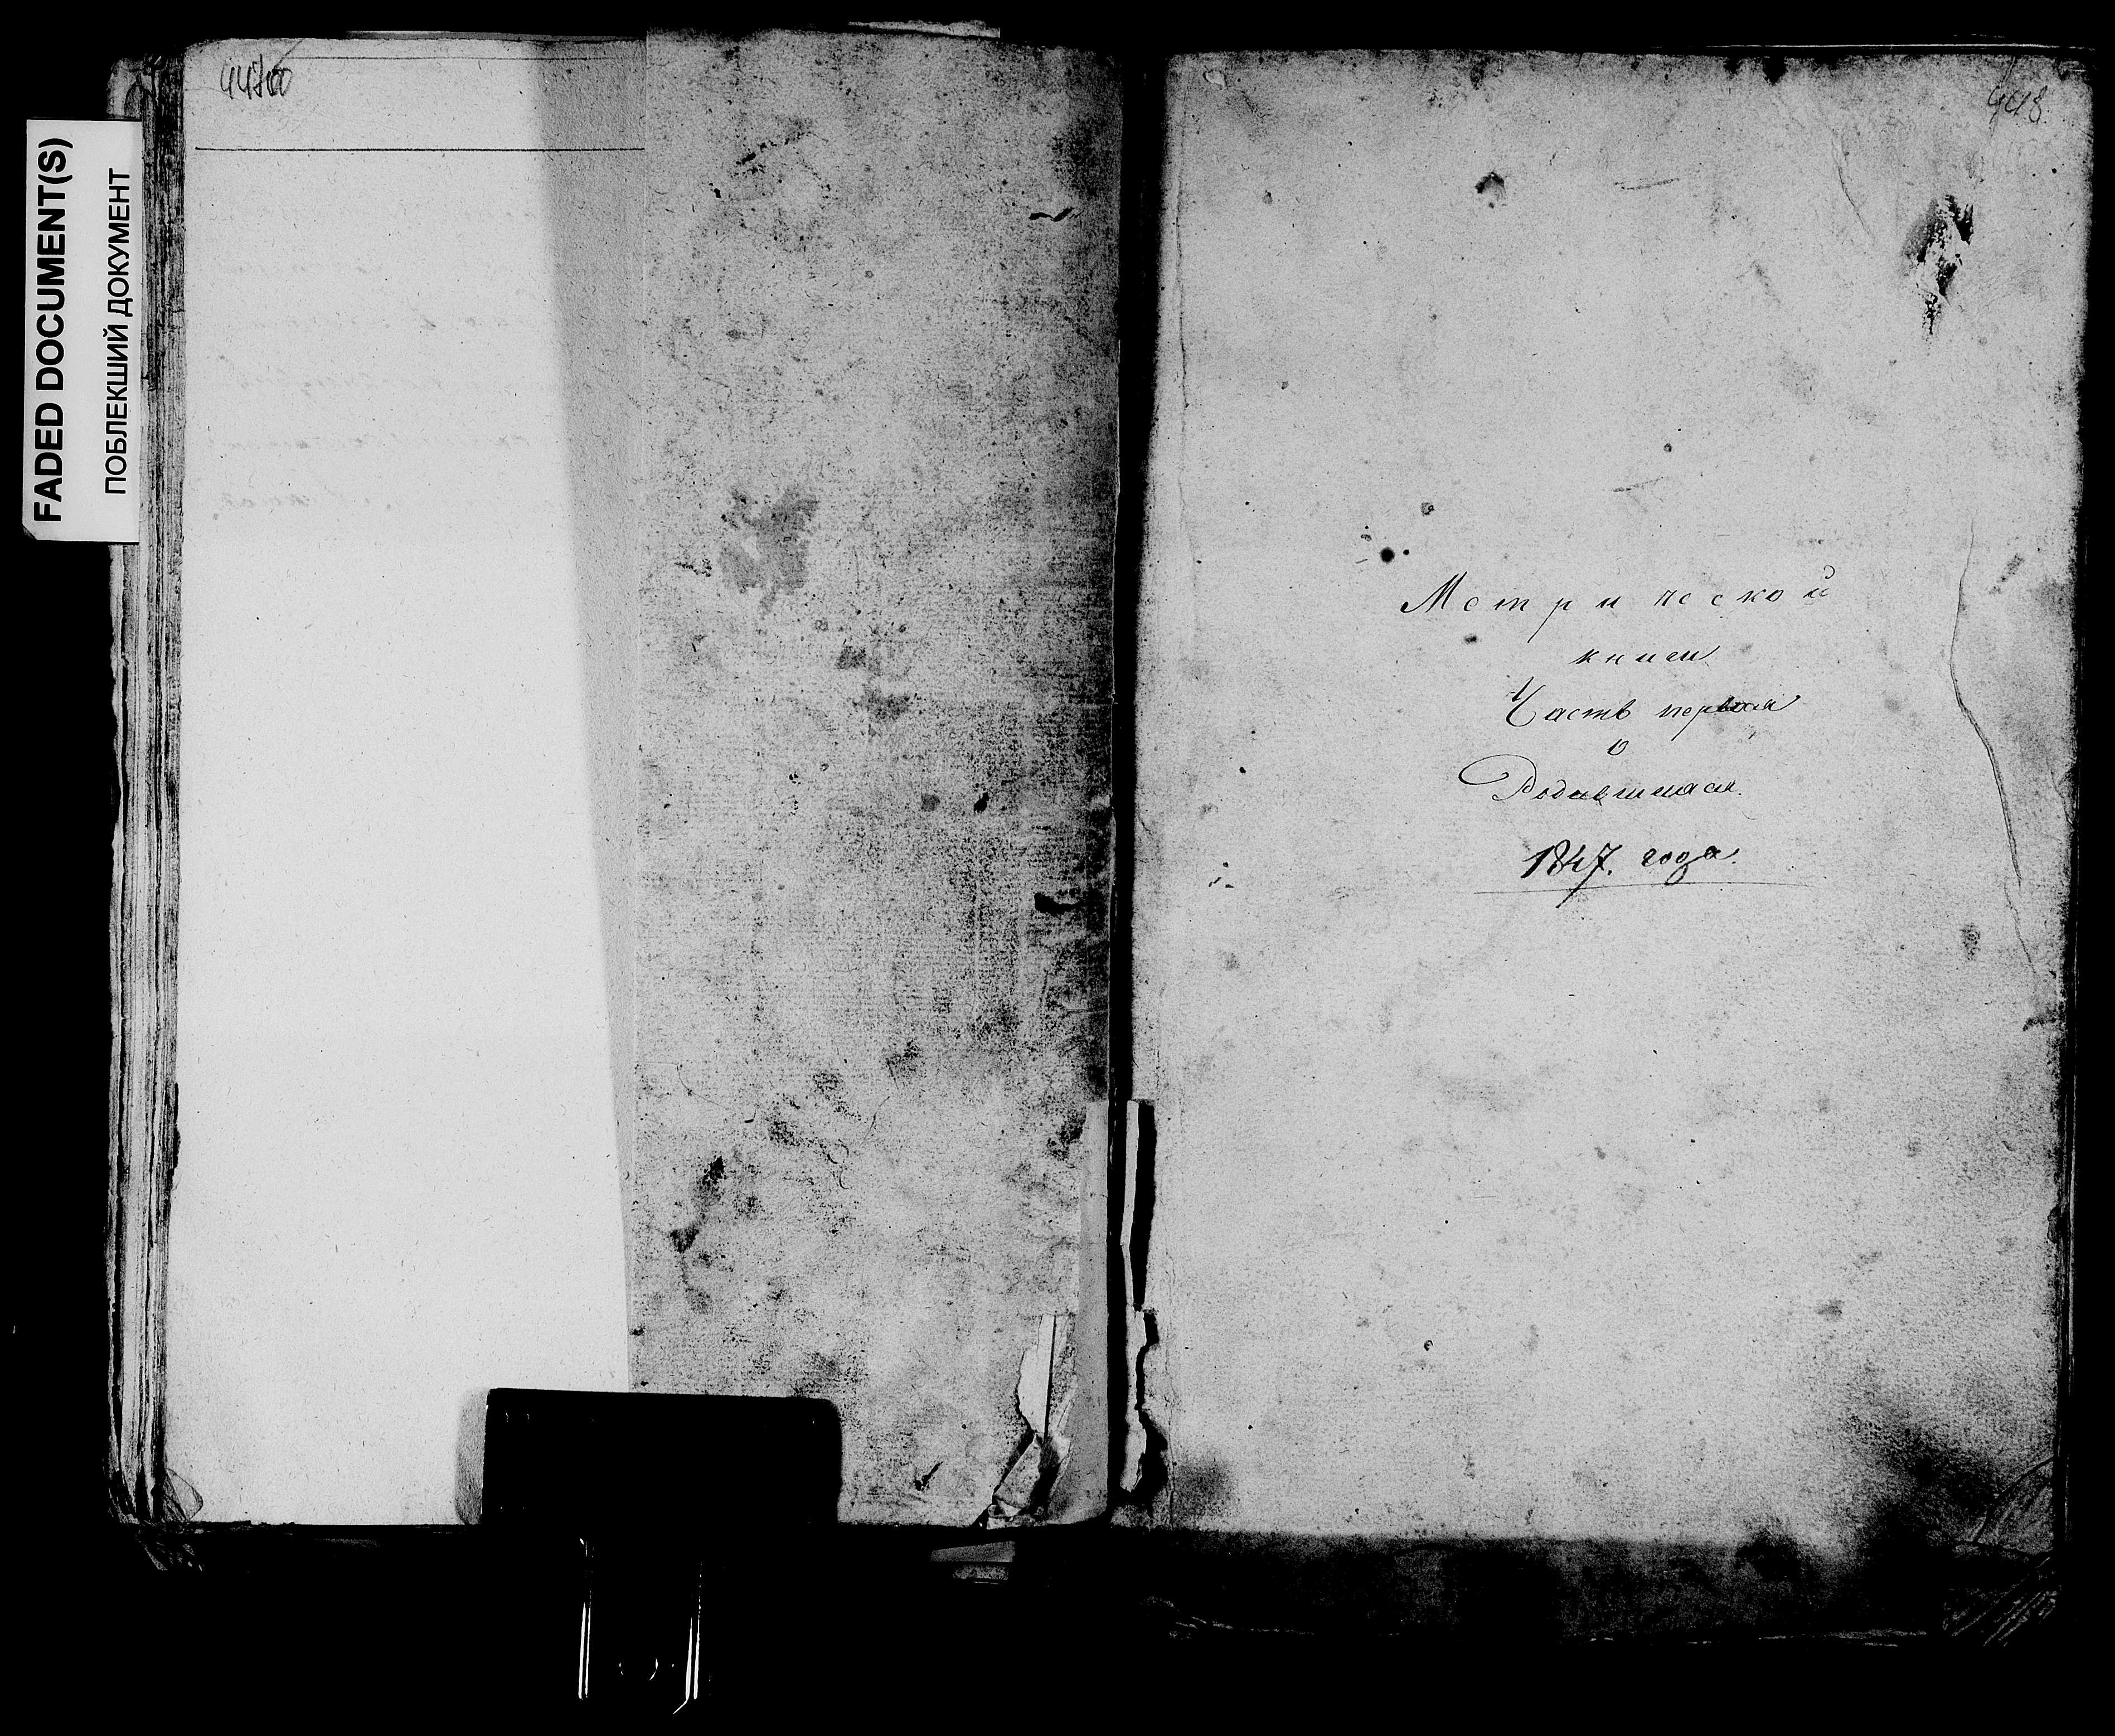 FADED DOCUMENT(S)
ПОБЛЕКШИЙ ДОКУМЕНТ
448
Метрической
книги
Часть первая
о
Родившихся.
1847. года.